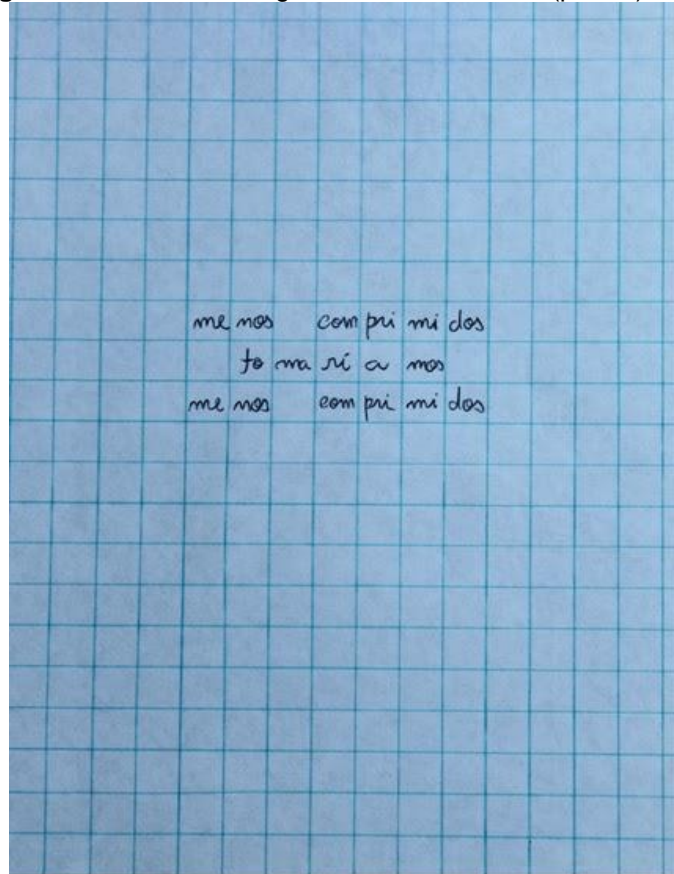 me nos com pri mi dos
to ma rí a mos
me nos com pri mi dos